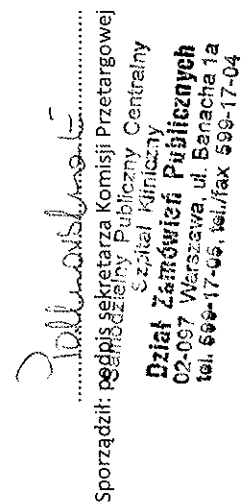 Sporządził: podpis sekretarza Komisji Przetargowej
Samodzielny Publiczny Centralny
Szpital Kliniczny
Dział Zamówień Publicznych
02-097 Warszawa, ul. Banacha 1a
tel. 599-17-05, tel./fax 599-17-04